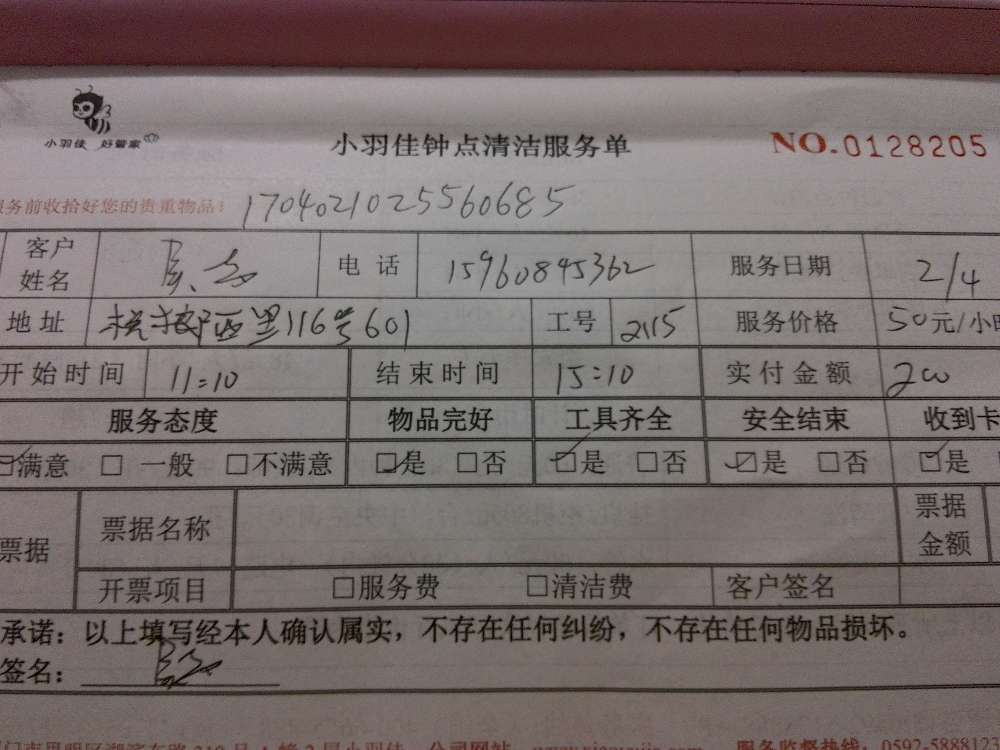 小羽佳 好管家
小羽佳钟点清洁服务单
NO.0128205
务前收拾好您的贵重物品: 1704021025560685
客户姓名 电话 15960845362 服务日期 2/4
地址 西里116号601 工号 2115 服务价格 50元/小时
开始时间 11:10 结束时间 15:10 实付金额 200
服务态度 物品完好 工具齐全 安全结束 收到卡
☑满意 □一般 □不满意 ☑是 □否 ☑是 □否 ☑是 □否 ☑是
票据 票据名称 票据金额
开票项目 □服务费 □清洁费 客户签名
承诺: 以上填写经本人确认属实，不存在任何纠纷，不存在任何物品损坏。
签名:
公司网站 服务监督热线: 0592-5888123